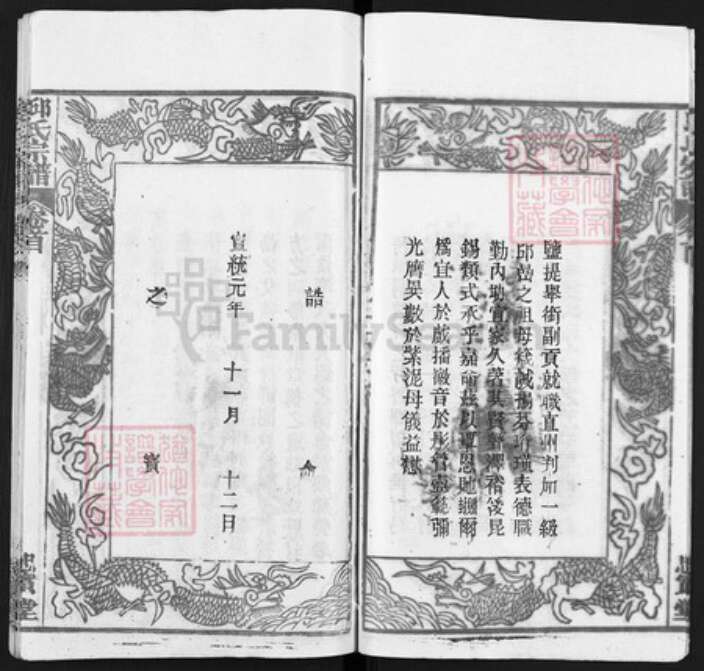 鹽提舉銜副貢就職直州判加一級
邱嵒之祖母箴誠揚芬珩璜表德職
勤內助宜家久著其賢聲澤裕後昆
錫類式承乎嘉命茲以覃恩貤贈爾
爲宜人於戲播徽音於彤管壼範彌
光膺異數於紫泥母儀益懋
誥命
宣統元年 十一月 十二日
之寶
邱氏宗譜 卷首
FamilySearch